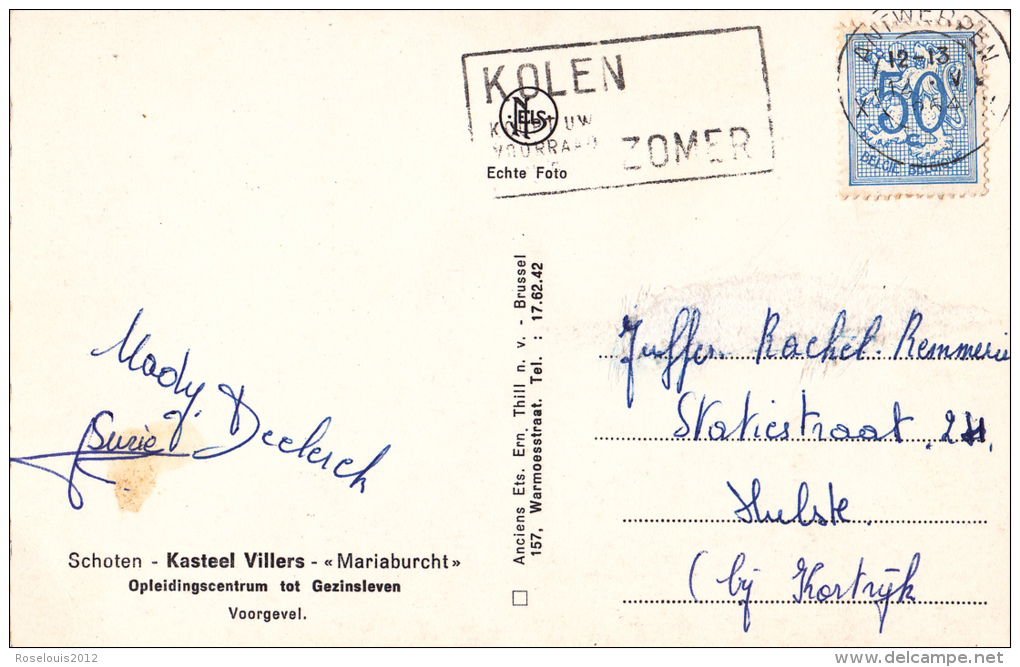 ANTWERPEN
12-13
50
BELGIE BELGIQUE
KOLEN
UW
VOORRAAD
ZOMER
NELS
Echte Foto
Anciens Ets. Ern. Thill n. v. - Brussel
157, Warmoesstraat. Tel. : 17.62.42
Mady Declerck
Suzie
Juffer. Rachel. Remmerie
Statiestraat. 24.
Hulste.
(bij Kortrijk
Schoten - Kasteel Villers - «Mariaburcht»
Opleidingscentrum tot Gezinsleven
Voorgevel.
Roselouis2012
www.delcampe.net